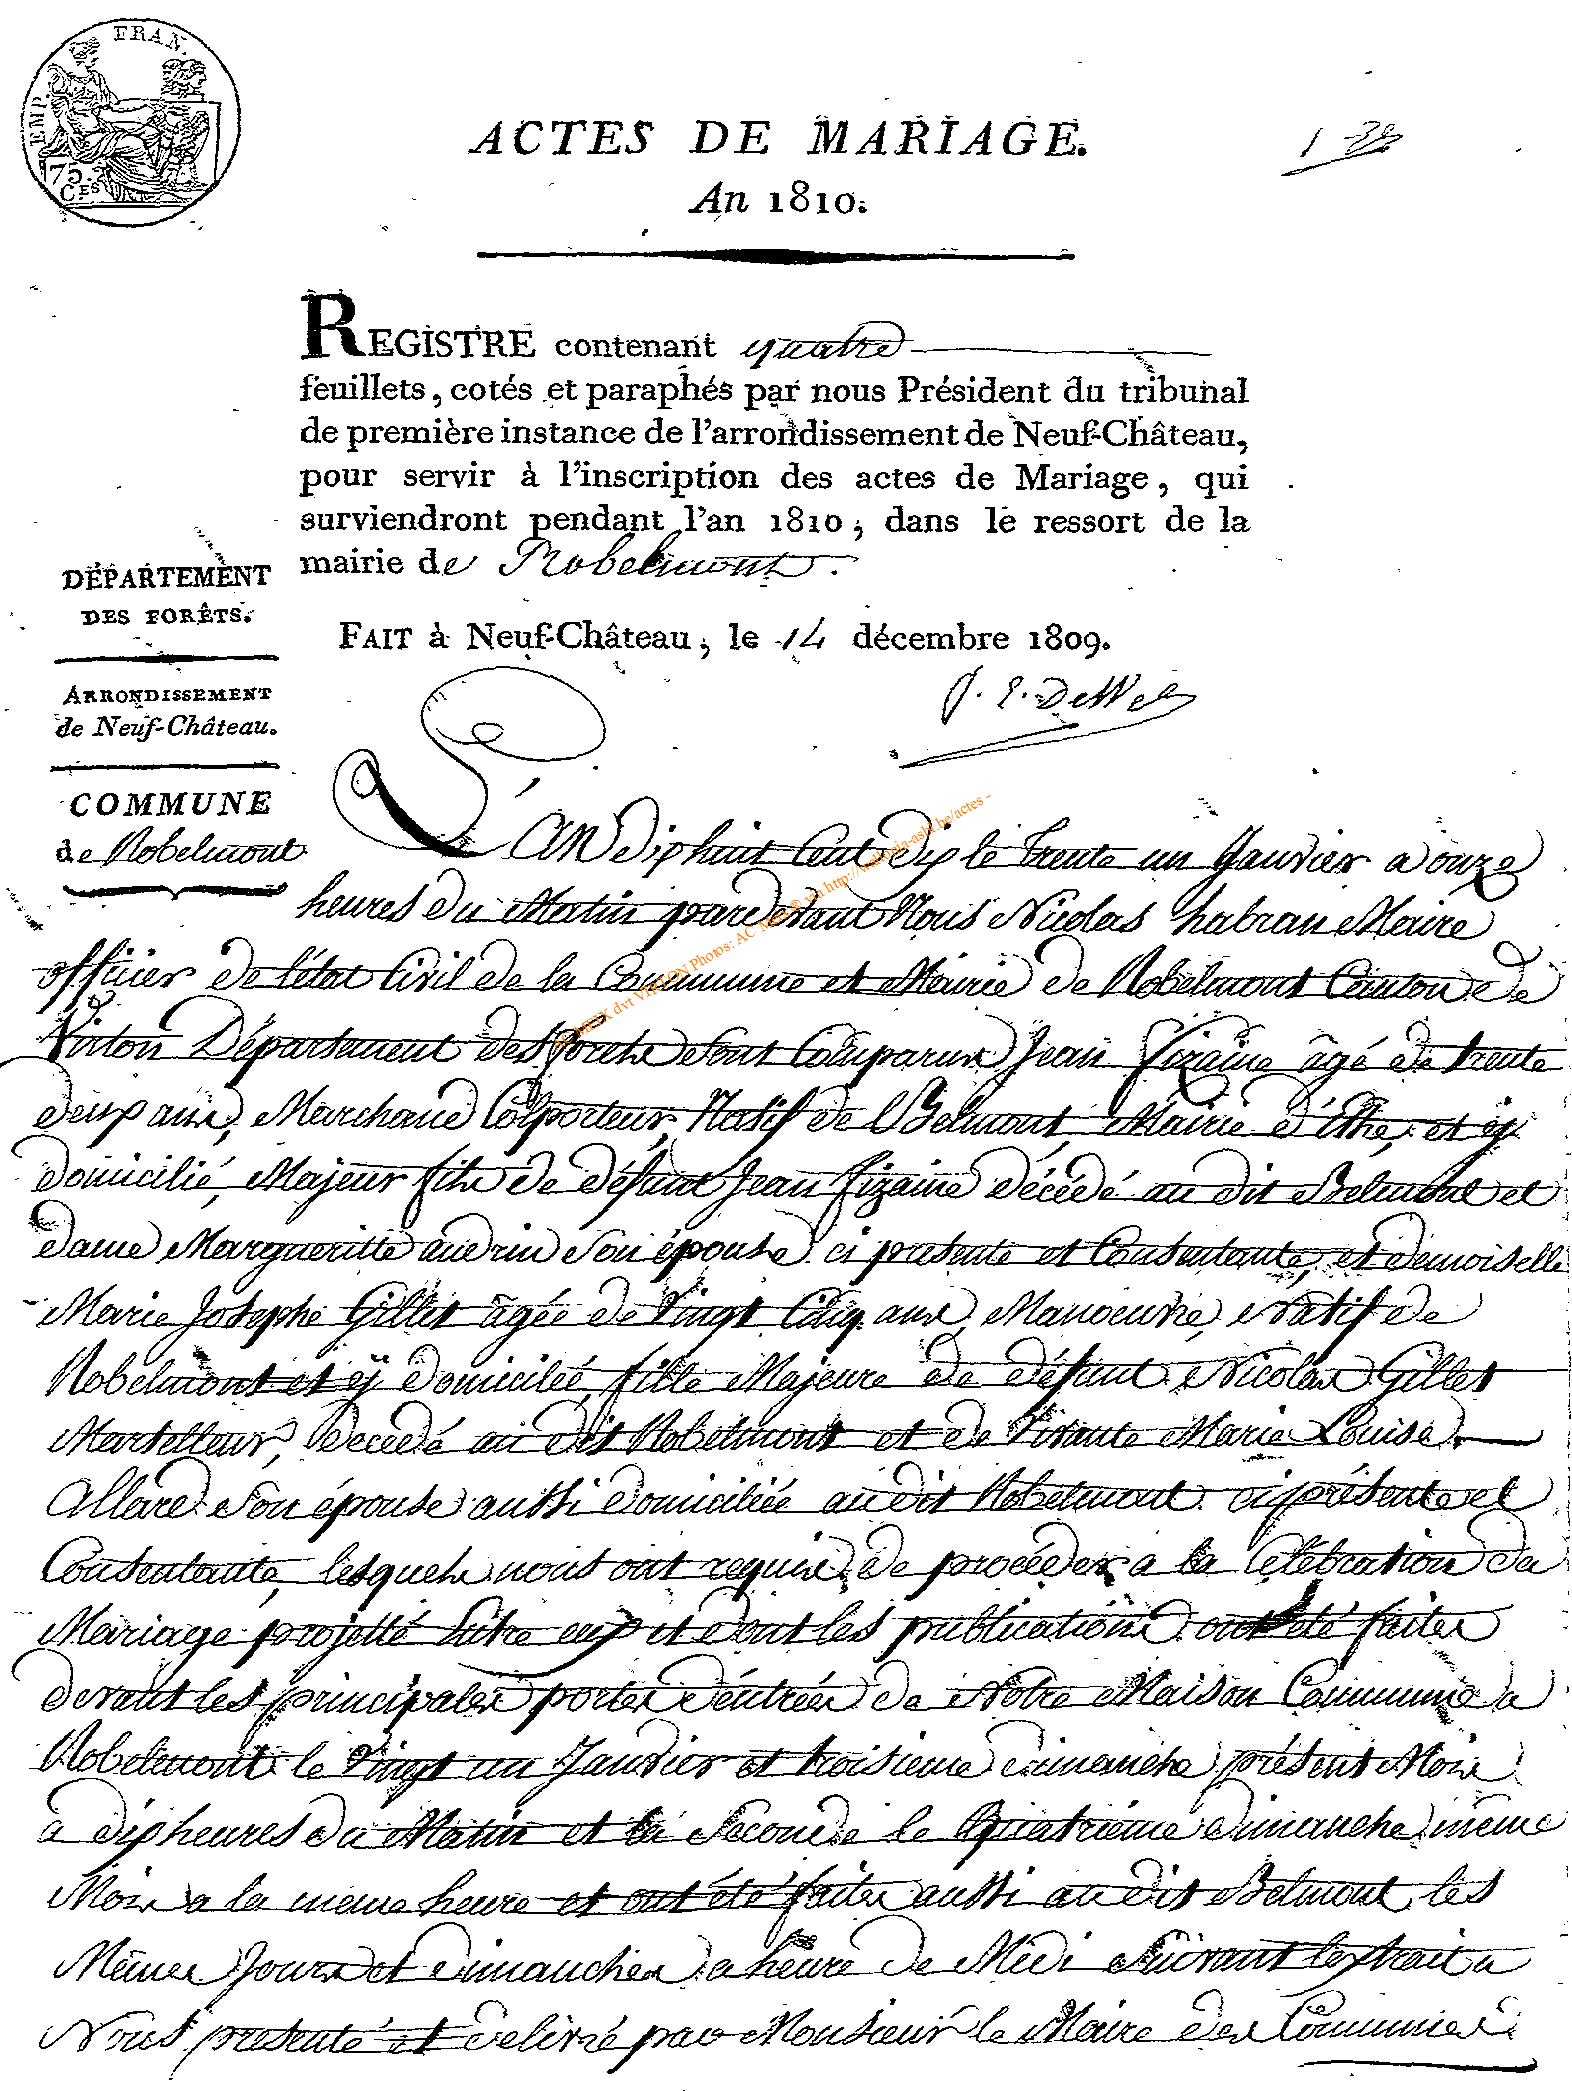 EMP. FRAN.
75.
CES
ACTES DE MARIAGE.
An 1810.
REGISTRE contenant quatre
feuillets, cotés et paraphés par nous Président du tribunal
de première instance de l'arrondissement de Neuf-Château,
pour servir à l'inscription des actes de Mariage, qui
surviendront pendant l'an 1810, dans le ressort de la
mairie de Robelmont.
FAIT à Neuf-Château, le 14 décembre 1809.
DÉPARTEMENT
DES FORÊTS.
ARRONDISSEMENT
de Neuf-Château.
COMMUNE
de Robelmont
L'An dix huit Cent dix le trente un Janvier a onze
heures du Matin pardevant Nous Nicolas habran Maire
officier de l'état Civil de la Commune et Mairie de Robelmont Canton de
Virton Département des forets sont Comparus Jean fizaine âgé de trente
deux ans, Marchand Colporteur, Natif de Belmont, Mairie d'Ethe, et ÿ
domicilié, Majeur fils de défunt Jean fizaine décédé au dit Belmont et
dame Margueritte audrin son épouse ci presente et Consentante, et demoiselle
Marie Josephe Gillet âgée de Vingt Cinq ans, Manoeuvre, Natif de
Robelmont et ÿ domiciliée, fille Majeure de défunt Nicolas Gillet
Martelleur, decedé au dit Robelmont et de Vivante Marie Louise
Allard son épouse aussi domiciliée au dit Robelmont ci présente et
Consentante, lesquels nous ont requis de procéder a la Célébration du
Mariage projetté Entre eux et dont les publications ont été faites
devant les principales portes d'éntrées de Notre Maison Commune a
Robelmont le Vingt un Janvier et troisieme dimanche présent Mois
a dix heures du Matin et la Seconde le Quatriéme dimanche même
Mois a la meme heure et ont été faites aussi au dit Belmont, les
Mêmes Jours et dimanches a heure de Midi Suivant lextrait a
Nous presenté et délivré par Monsieur le Maire des Communes